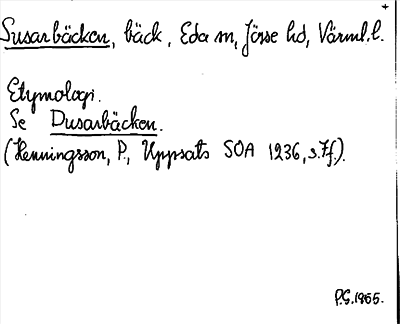 +
Susarbäcken, bäck, Eda sn, Jösse hd, Värml. l.
Etymologi.
Se Dusarbäcken.
(Henningsson, P., Uppsats SOA 1236, s.7f.).
P.G.1955.